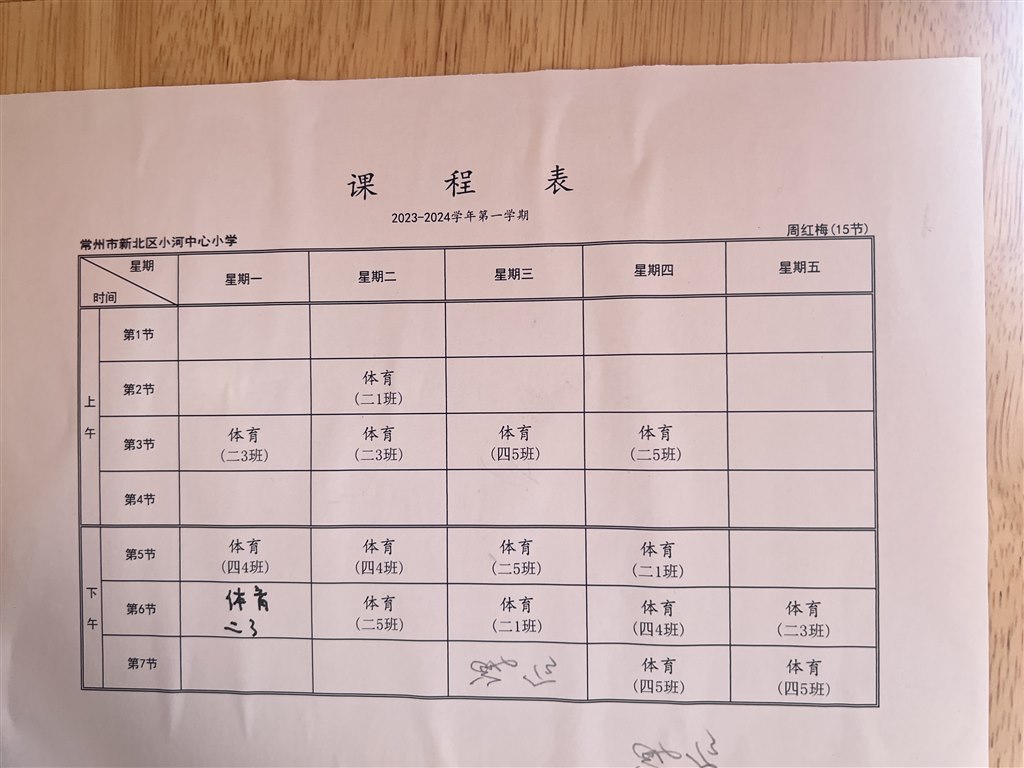 课 程 表
2023-2024学年第一学期
常州市新北区小河中心小学 周红梅(15节)
星期 时间 星期一 星期二 星期三 星期四 星期五
上午
第1节
第2节 体育(二1班)
第3节 体育(二3班) 体育(二3班) 体育(四5班) 体育(二5班)
第4节
下午
第5节 体育(四4班) 体育(四4班) 体育(二5班) 体育(二1班)
第6节 体育二3 体育(二5班) 体育(二1班) 体育(四4班) 体育(二3班)
第7节 体育(四5班) 体育(四5班)